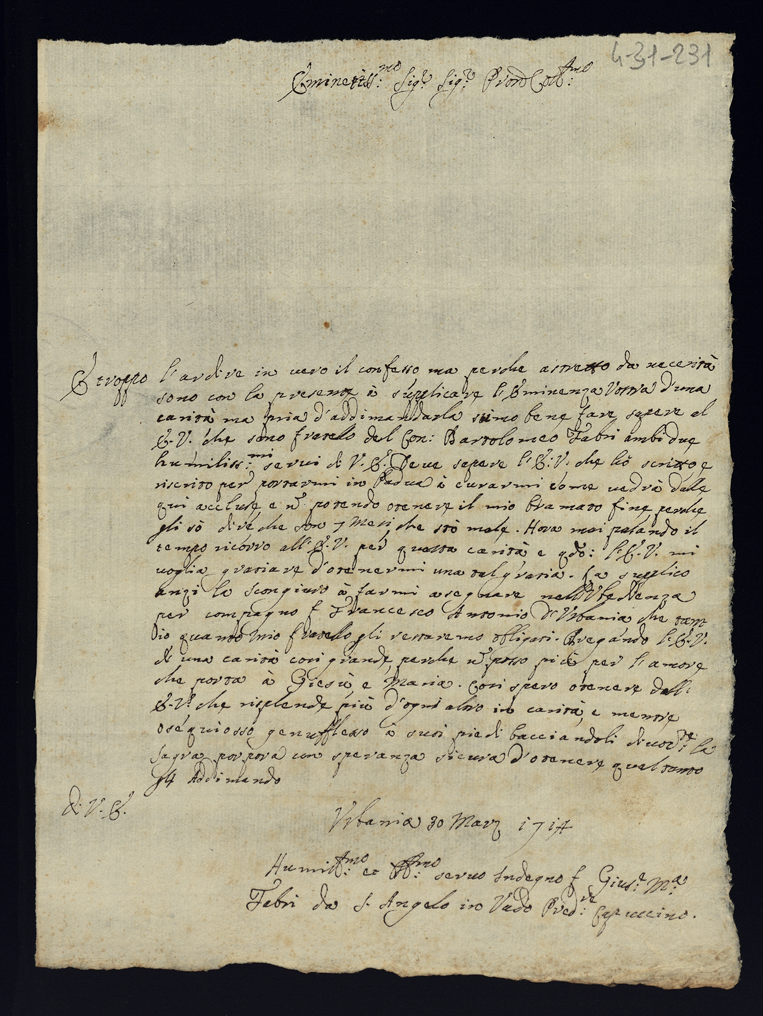 4-31-231
Eminetiss:mo Sigr Sigr Pron Col:mo
È troppo l'ardire in vero il confesso ma perche astretto da necesità
sono con la presente à suplicare l'Eminenza Vostra d'una
carità ma pria d'addimandarla stimo bene fare sapere al
E.V. che sono fratello del Con: Bartolomeo Fabri ambi due
humiliss:mi servi di V.E. Deve sapere l'E.V. che hò scritto e
riscritto per portarmi in Padua à curarmi come vedrà dalle
qui accluse e nō potendo otenere il mio bramato fine perche
gli sò dire che son 7 mesi che stò male. Hora mai
tempo ricorro all'E.V. per questa carità e qdo: l'E.V. mi
voglia gratiare d'otenermi una tal gratia. La suplico
anzi la scongiuro à farmi asegnare nell'Vbedienza
per compagno f. Francesco Antonio d'Urbania che tan
to quanto mio fratello gli restaremo obligati. Pregando l'E.V.
di una carità cosi grande, perche nō posso più per l'amore
che porta à Giesù e Maria. Cosi spero otenere dall'
E.V. che risplende più d'ogni altro in carità, e mentre
osequiosso genuflesso à suoi piedi bacciandoli la
sagra porpora con speranza sicura d'otenere quel tanto
gli Addimando
Di V.E.
Urbania 30 Marz 1714
Humil:mo et servo Indegno f. Gius:e Ma
Fabri da S. Angelo in Vado Pred:re Capuccino.